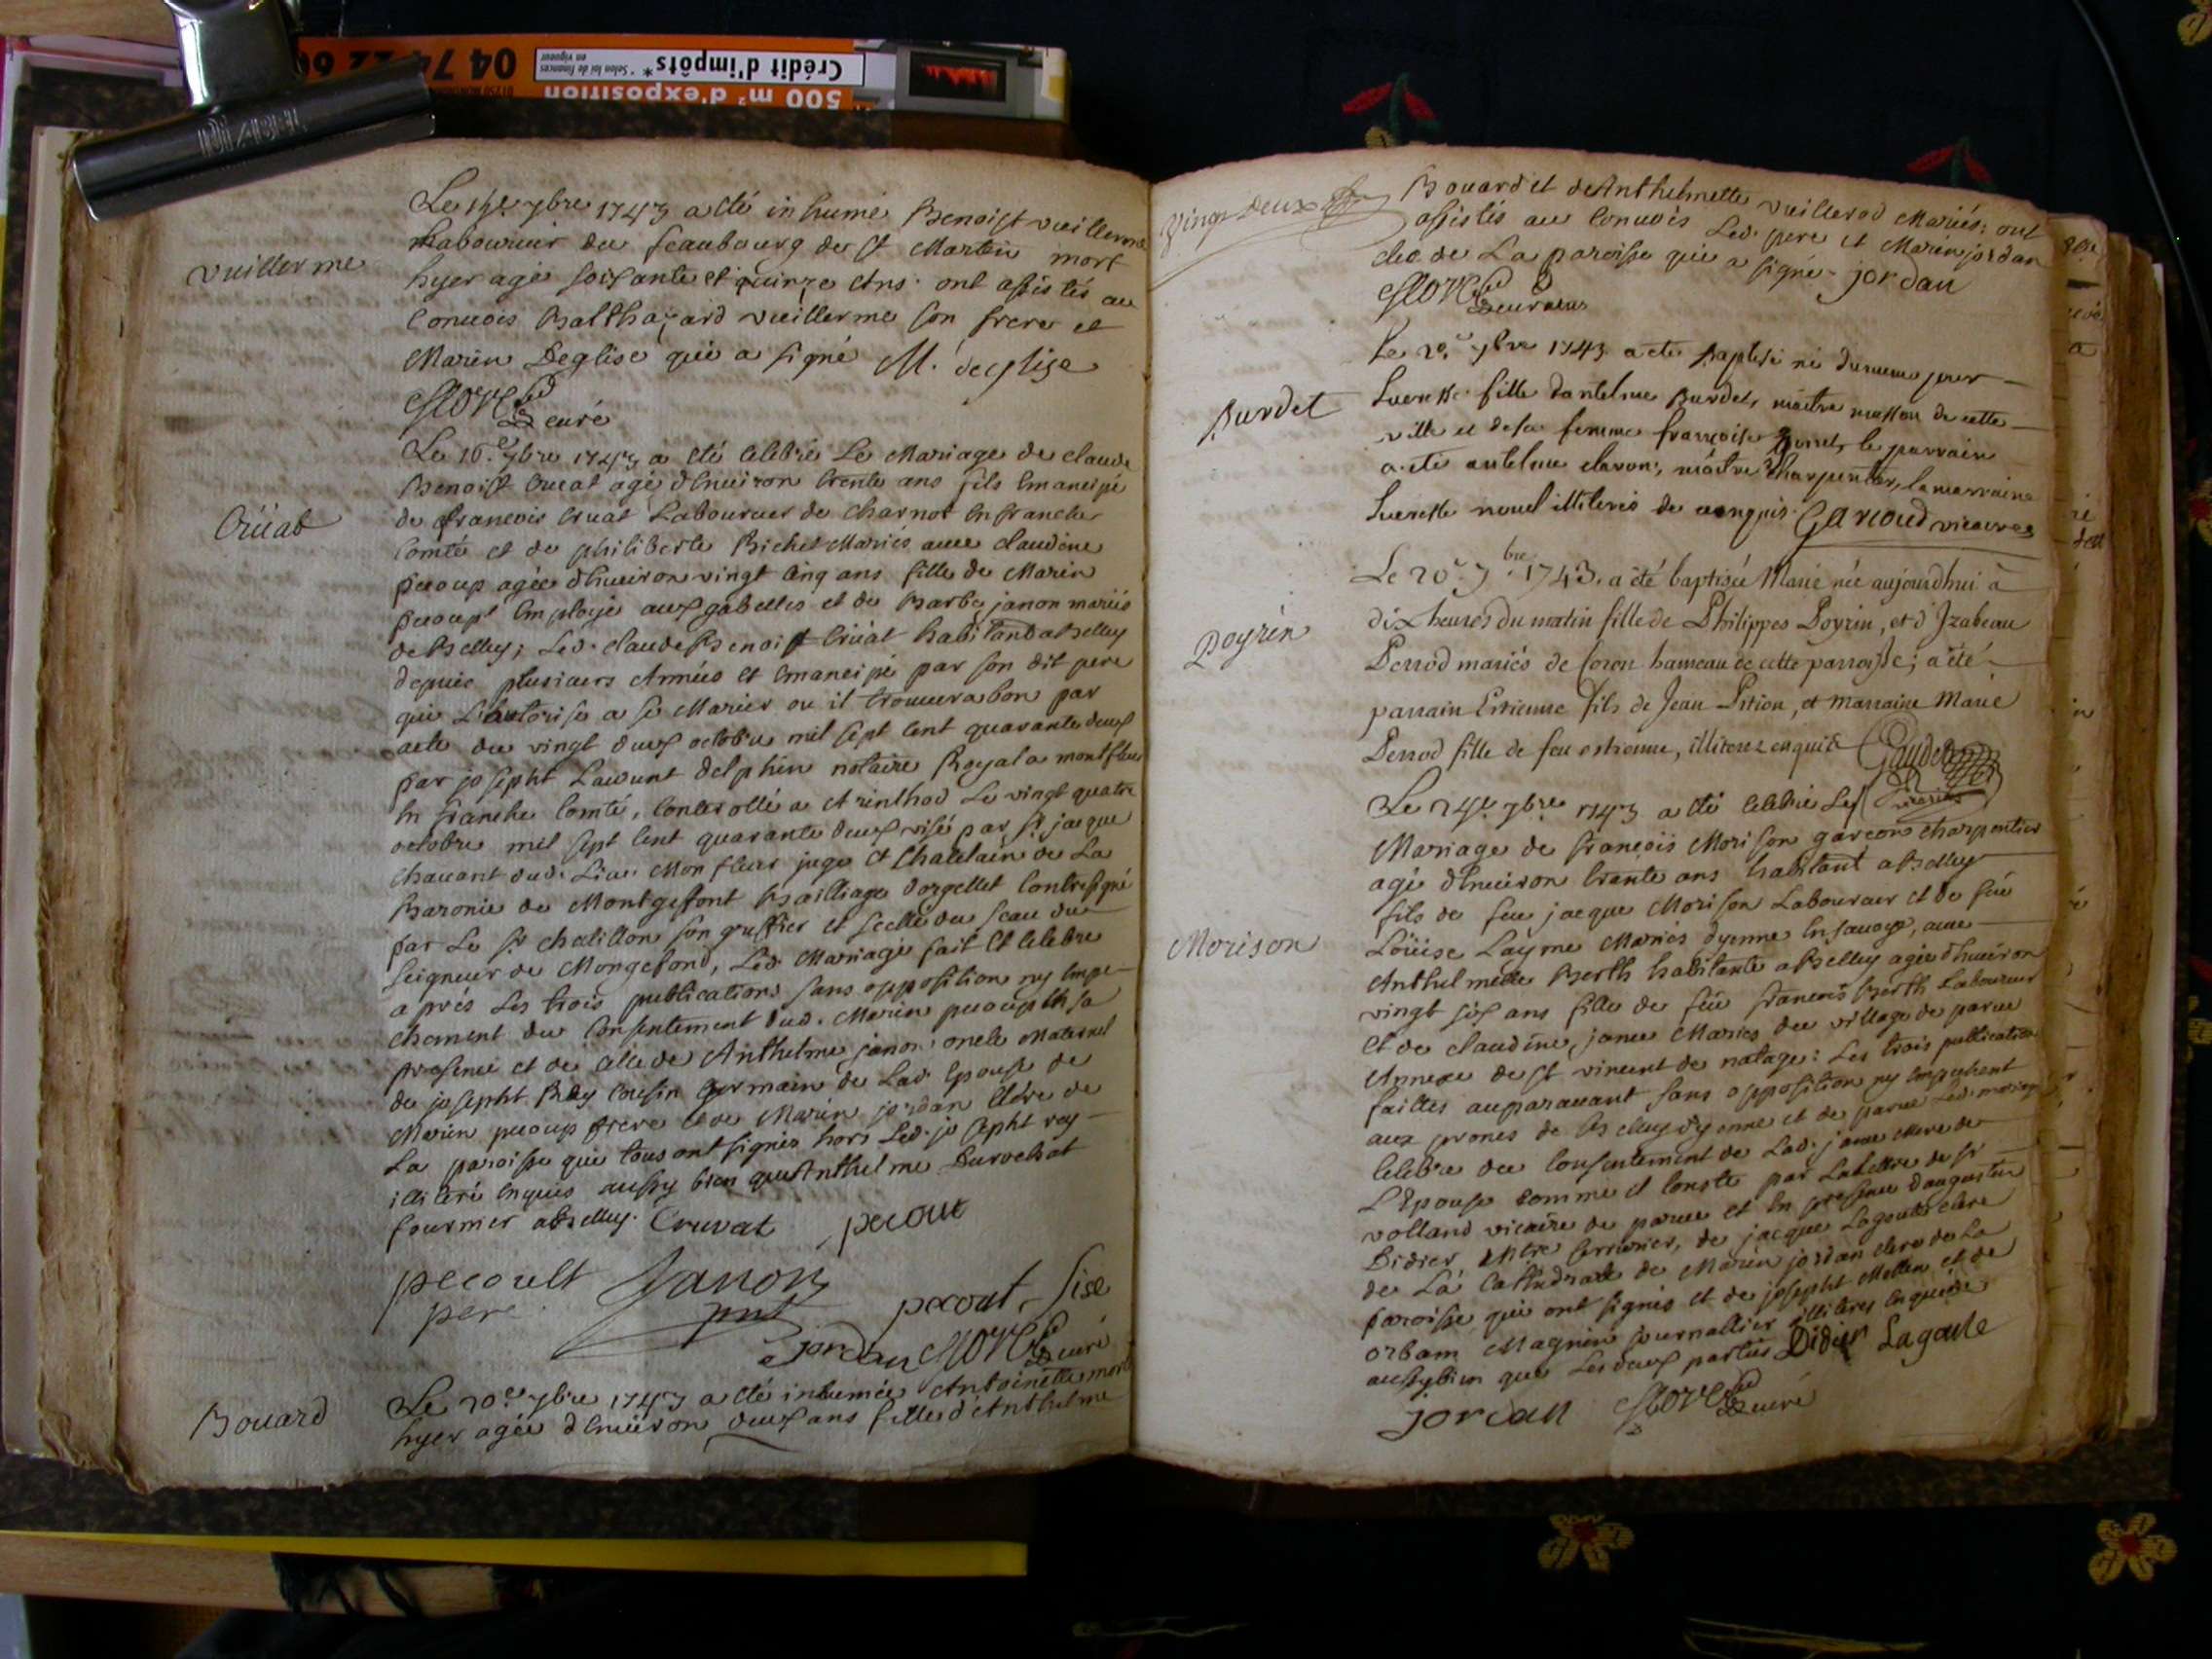 04 74 22 6
Crédit d'impôts*
* Selon loi de finances
en vigueur
500 m² d'exposition
Vuillerme
Le 15e 7bre 1743 a eté inhumé Benoist vuillerme
labourier du feaubourg de St Martin mort
hyer agé soisante et quinze Ans. ont assistés au
Convois Balthazard vuillerme son frere et
Marin Deglise qui a signé M. deglise
curé
Crüat
Le 16e 7bre 1743 a eté Celebré Le Mariage de claude
Benoist Cruat agé d'Enuiron trente ans fils Emancipé
de francois Cruat Laboureur de Charnot En franche
Comté et de philiberte Bichet Mariés auec claudine
pecoup agée d'Enuiron vingt Cinq ans fille de Marin
pecoupt Employé aux gabelles et de Barbe janon mariés
de Belley; Led. claude Benoist Crüat habitant a Belley
depuis plusieurs Années et Emancipé par son dit pere
qui L'autorise a se Marier ou il trouuera bon par
acte du vingt deux octobre mil sept Cent quarante deux
par josepht Laurent delphin notaire Royal a montfleur
En franche Comté, Controllé a Arinthod Le vingt quatre
octobre mil sept Cent quarante deux visé par Sr. jacque
chauant dud. Lieu Monfleur juge Et Chatelain de La
Baronie de Montgefont Bailliage dorgellet Contresigné
par Le Sr chatillon son greffier et scellé du sceau du
seigneur de Mongefond, Led. Mariage fait Et Celebré
aprés Les trois publications sans opposition ny Empe-
chement du Consentement dud. Marin pecoup En sa
presence et de Celle de Anthelme janon oncle Maternel
de josepht Rey Cousin germain de Lad. Epouse de
Marin pecoup frere et de Marin jordan Clerc de
La paroisse qui tous ont signés hors Led. josepht rey
illiteré Enquis aussy bien que Anthelme Durochat
fournier a Belley. Cruvat pecout
pecoult Janon
pere pnt pecout fise
jordan curé
Bouard
Le 20e 7bre 1743 a eté inhumée Antoinette morte
hyer agée d'Enuiron deux ans fille d'Anthelme
vingt deux
Bouard et de Anthelmette vuillerod Mariés; ont
assistés au Conuois Led. pere et Marin jordan
clerc de La paroisse qui a signé jordan
curé
Burdet
Le 20e 7bre 1743 a ete baptisé né du meme jour
Lucresse fille d'antelme Burdet, maitre masson de cette
ville et de sa femme françoise, le parrain
a eté antelme clavon, maitre charpentier, la marraine
Lucresse nouel illiterés de ce enquis. Garioud vicaire
Poyrin
Le 20e 7bre 1743. a été baptisée Marie née aujourdhui à
dix heures du matin fille de Philippes Poyrin, et d'Izabeau
Perrod mariés de Coron hameau de cette parroisse; a été
parrain Estienne fils de Jean Pition, et marraine Marie
Perrod fille de feu estienne, illiterez enquis Gaudet
vicaire
Morison
Le 24e 7bre 1743 a eté Celebré Le
Mariage de francois Morison garcon charpentier
agé d'Enuiron trante ans habitant a Belley
fils de feu jacque Morison Laboureur et de feüe
Loüise Layme Mariés d'yenne En sauoye, auec
Anthelmette Berth habitante a Belley agée d'Enuiron
vingt six ans fille de feu francois Berth Laboureur
Et de claudine jame Mariés du village de parue
Annexe de St vincent de natage: Les trois publications
faittes auparauant sans opposition ny Empechent
aux prones de Belley d'yenne et de parue Led. mariage
Celebré du Consentement de Lad. jame Mere de
L'Epouse comme il Conste par La Lettre de Sr
volland vicaire de parue et En presence d'augustin
Didier Mtre serrurier, de jacque Lagoute clerc
de La Cathedrale de Marin jordan clerc de La
paroisse qui ont signés et de josepht Mollen et de
orbam Magnin journallier illiterés Enquise
aussybien que Les deux parties Didier Lagoute
jordan curé